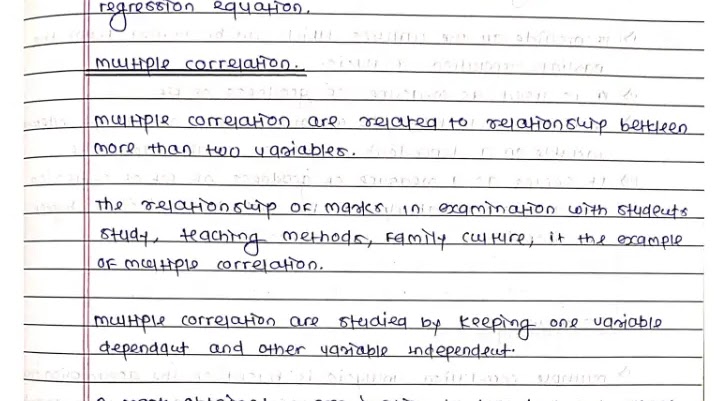 regression equation.
multiple correlation.
multiple correlation are related to relationship between
more than two variables.
the relationship of marks in examination with students
study, teaching methods, family culture, it the example
of multiple correlation.
multiple correlation are studied by keeping one variable
dependant and other variable independent.